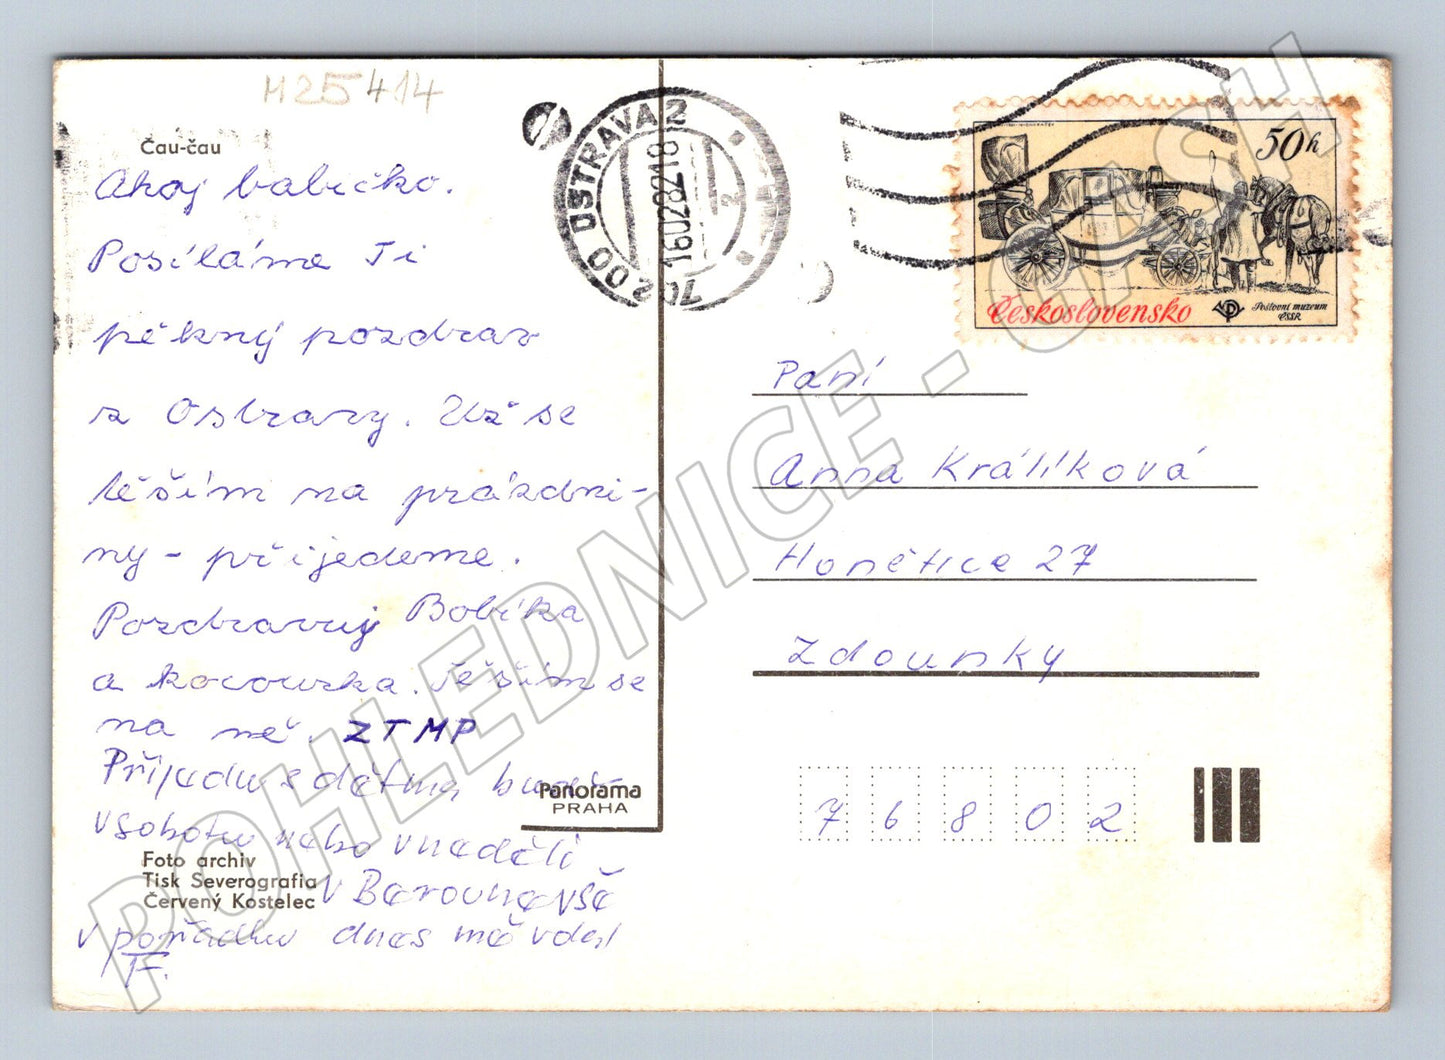 H25414
Čau-čau
Ahoj babičko.
Posíláme Ti
pěkný pozdrav
z Ostravy. Už se
těším na prázdni-
ny - přijedeme.
Pozdravuj Bobíka
a kocourka. Těším se
na ně. ZTMP
Přijedu s dětma
v sobotu nebo v neděli
V Berouna vše
v pořádku dnes mě
Panorama
PRAHA
Foto archiv
Tisk Severografia
Červený Kostelec
702 00 OSTRAVA 2
16.02.82 18
2
50h
Československo
Poštovní muzeum
ČSSR
Paní
Anna Králíková
Honětice 27
Zdounky
76802
POHLEDNICE - CASH